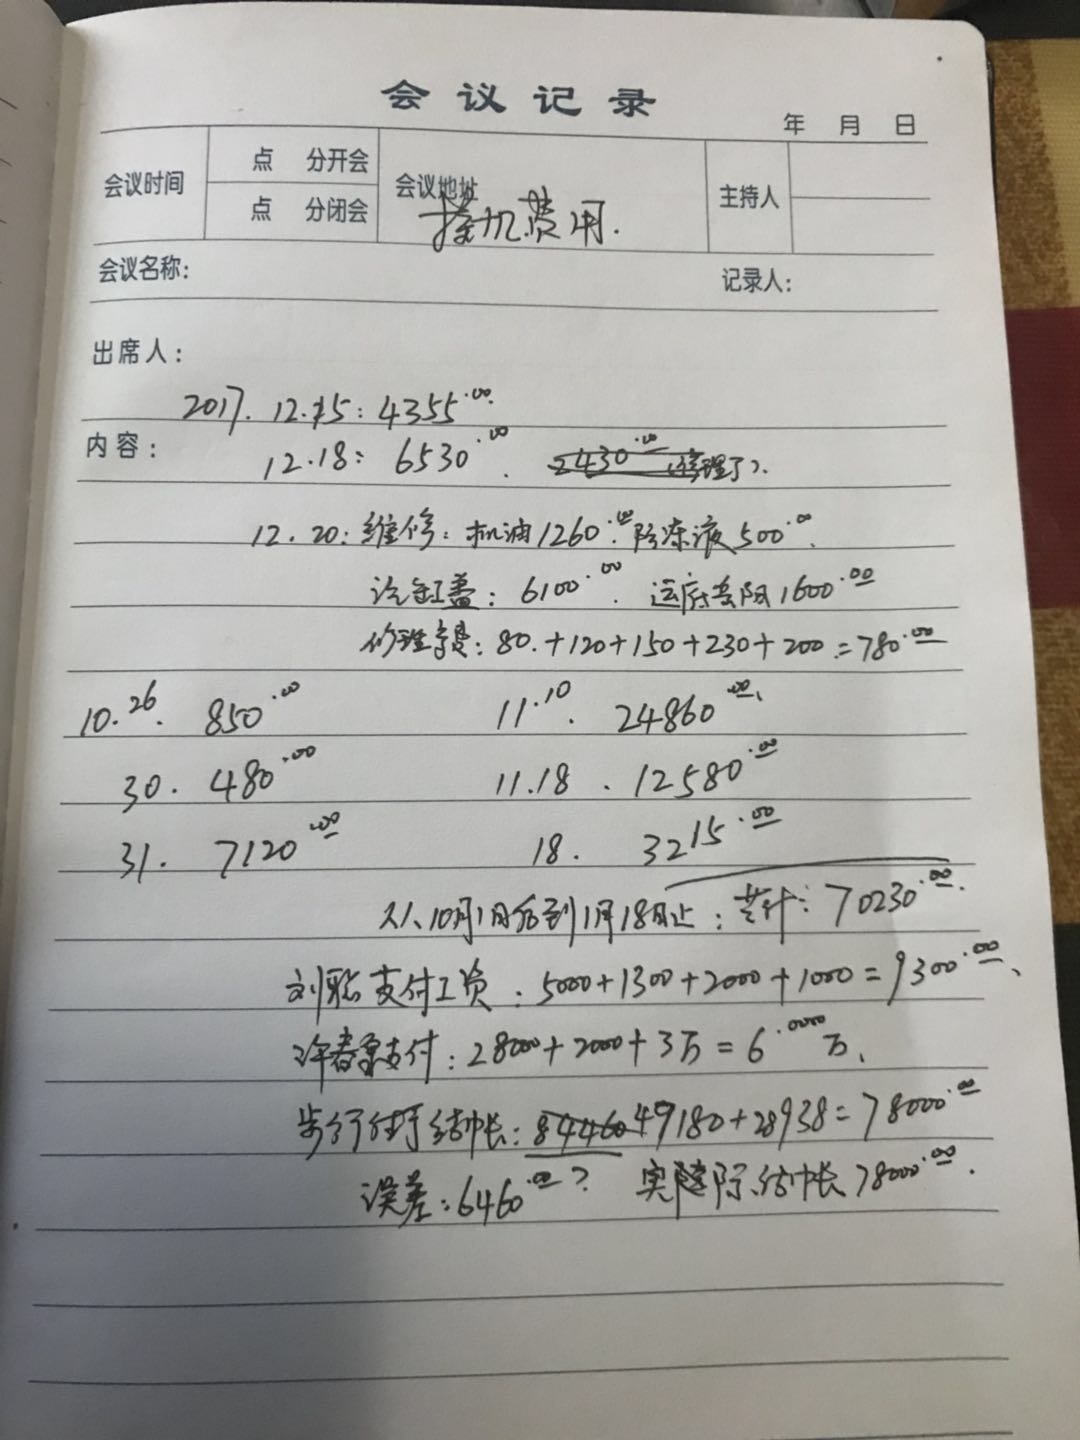 会议记录
年 月 日
会议时间 点 分开会 会议地址 主持人
点 分闭会
费用.
会议名称: 记录人:
出席人:
2017. 12.15: 4355.00
内容: 12.18: 6530.00. 2430.00 (修理了).
12.20: 维修: 机油1260.00 防冻液500.00.
汽缸盖: 6100.00. 运 岳阳1600.00
修理费: 80.+120+150+230+200=780.00
10.26. 850.00 11.10. 24860.00.
30. 480.00 11.18. 12580.00
31. 7120.00 18. 3215.00
从10月1日后到1月18日止: 共计: 70230.00.
刘聪支付工资: 5000+1300+2000+1000=9300.00、
许春 支付: 28000+2000+3万=6.0000万.
步行 结帐: 84460 49180+28938=78000.00
误差: 6460.00? 实际 结帐78000.00.